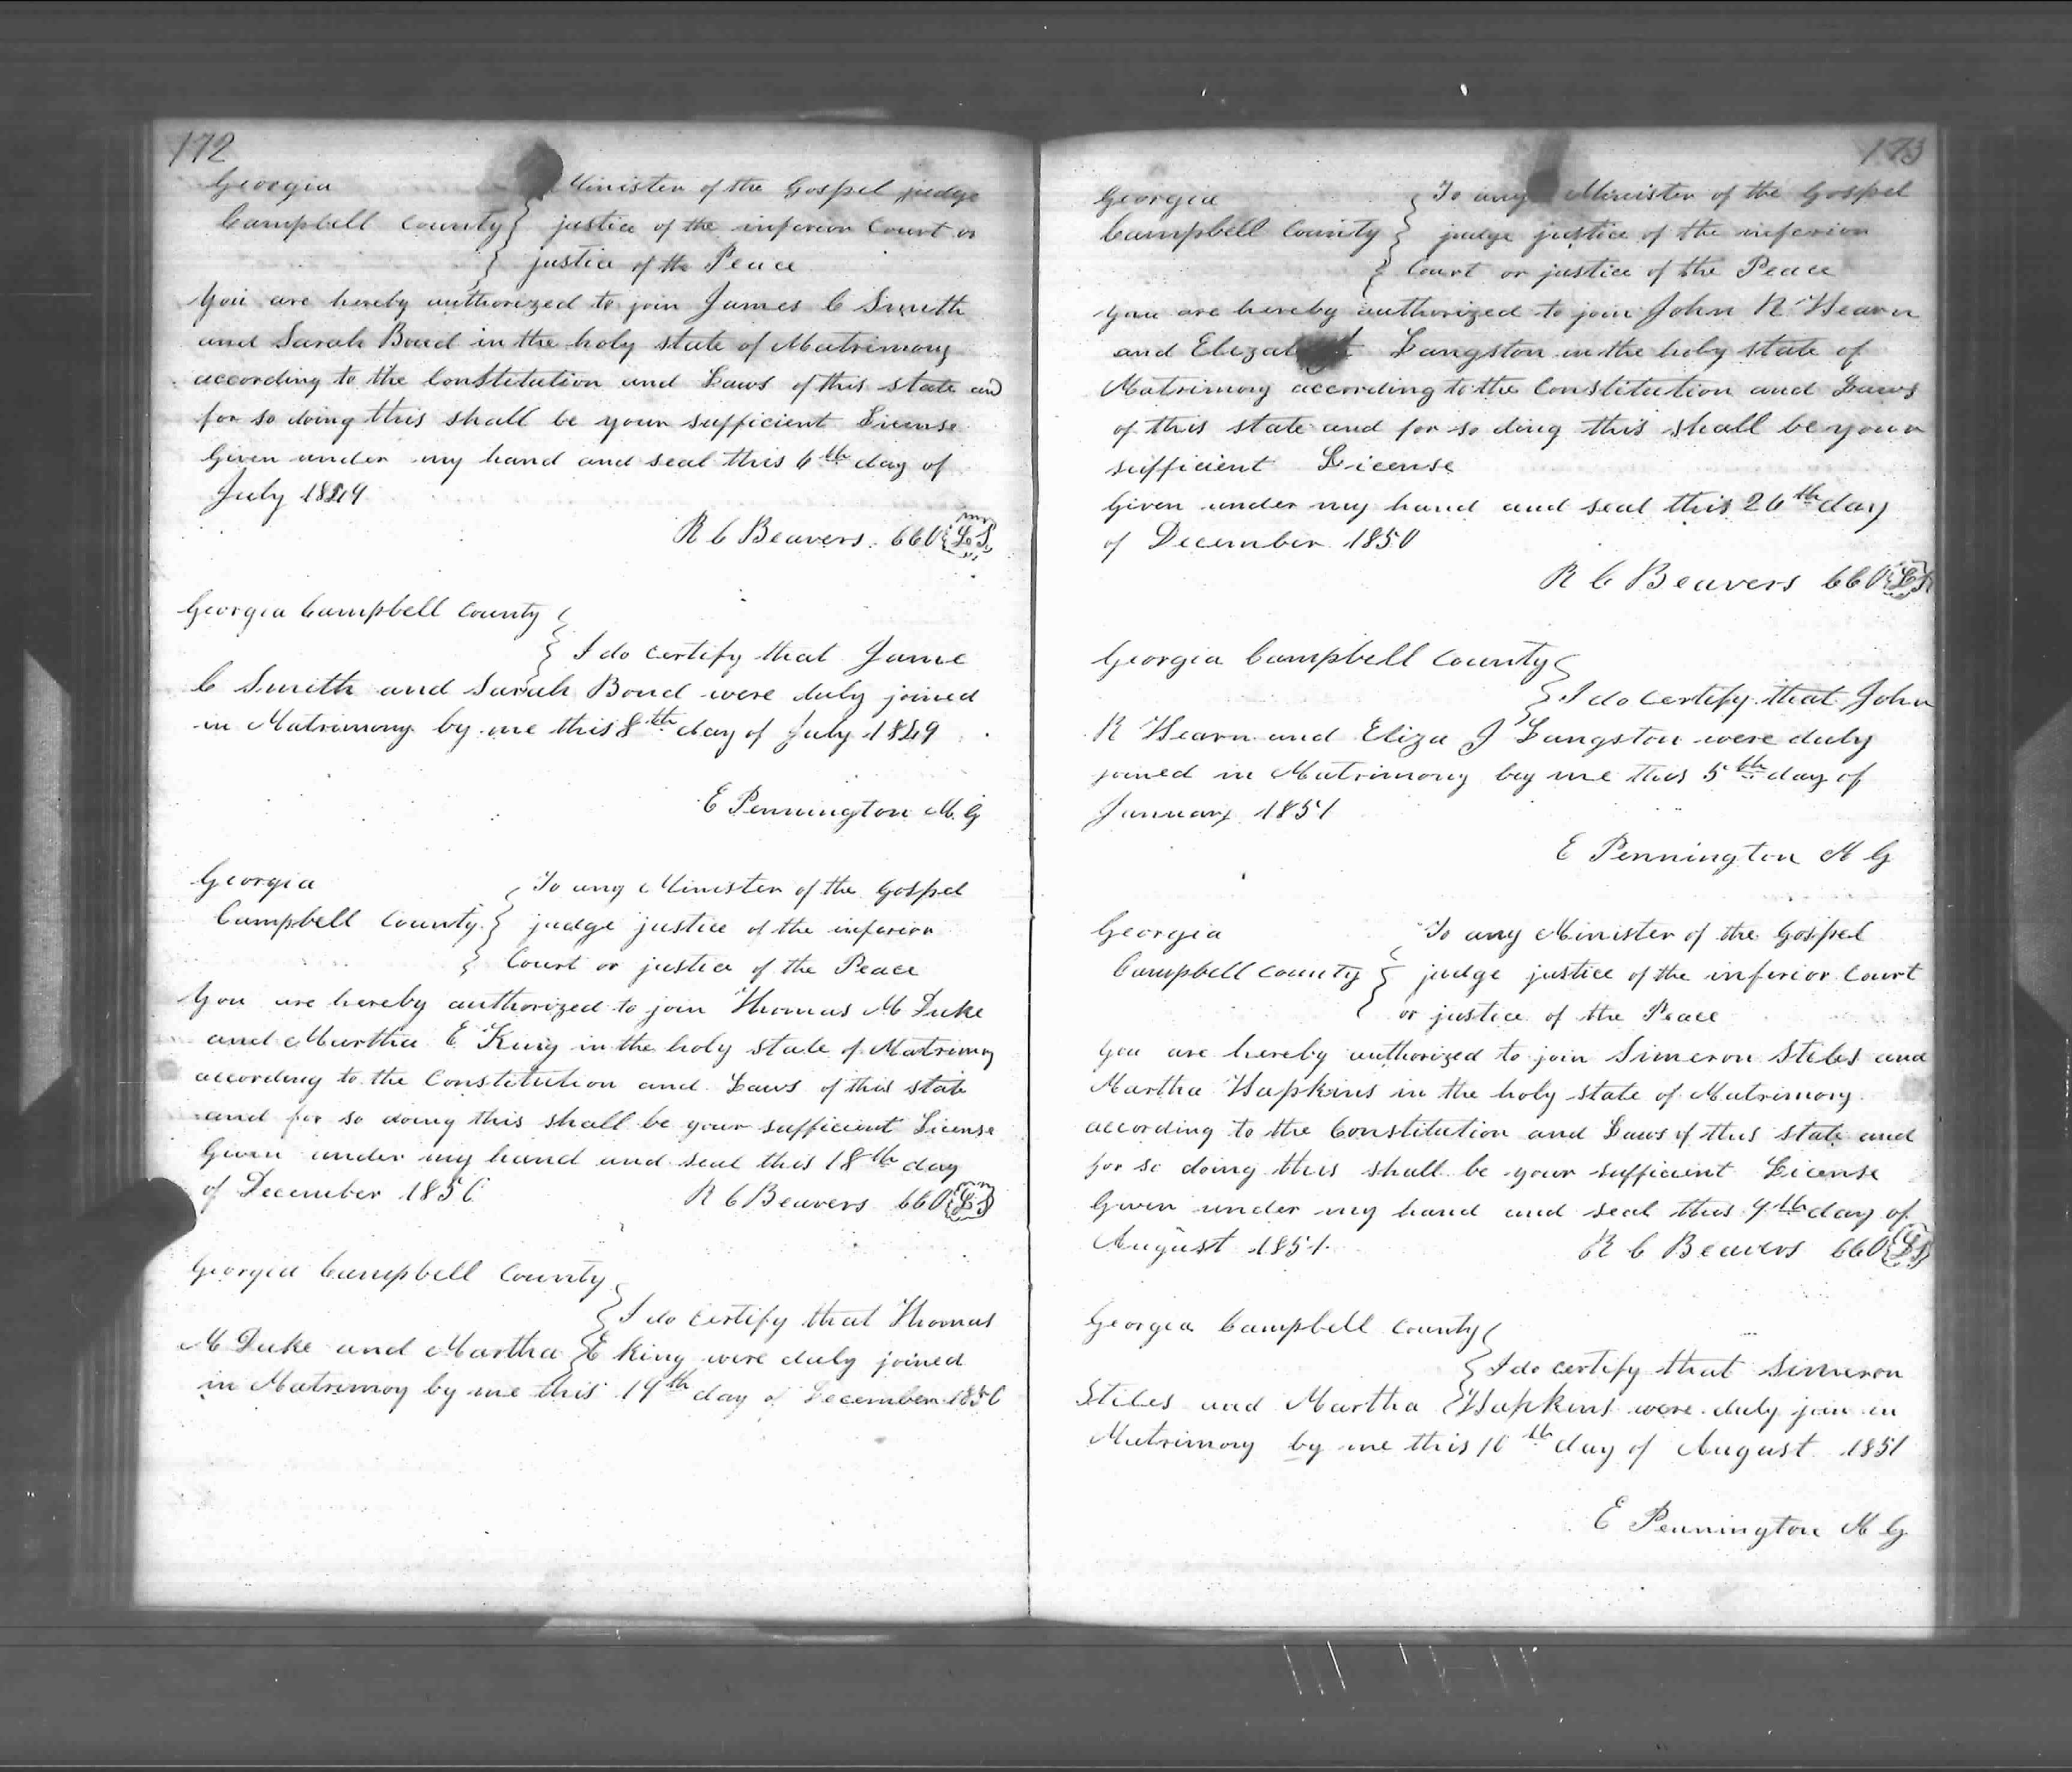 172
Georgia
Minister of the Gospel judge
Campbell County justice of the inferior Court or
justice of the Peace
You are hereby authorized to join James C Smith
and Sarah Bond in the holy state of Matrimony
according to the Constitution and Laws of this state and
for so doing this shall be your sufficient License
Given under my hand and seal this 6th day of
July 1849
R C Beavers. CCO LS
Georgia Campbell County
I do certify that Jame
C Smith and Sarah Bond were duly joined
in Matrimony by me this 8th day of July 1849
E Pennington M. G
Georgia
To any Minister of the Gospel
Campbell County judge justice of the inferior
Court or justice of the Peace
You are hereby authorized to join Thomas M Duke
and Martha E King in the holy state of Matrimoy
according to the Constitution and Laws of this state
and for so doing this shall be your sufficient License
Given under my hand and seal this 18th day
of December 1850 R C Beavers CCO LS
Georgia Campbell County
I do certify that Thomas
M Duke and Martha E King were duly joined
in Matrimoy by me this 19th day of December 1850
173
Georgia
To any Minister of the Gospel
Campbell County judge justice of the inferior
Court or justice of the Peace
you are hereby authorized to join John R Hearn
and Langston in the holy state of
Matrimony according to the Constitution and Laws
of this state and for so ding this shall be your
sufficient License
Given under my hand and seal this 26th day
of December 1850
R C Beavers CCO LS
Georgia Campbell County
I do certify that John
R Hearn and Eliza J Langston were duly
joined in Matrimony by me this 5th day of
January 1851
E Pennington M G
Georgia
To any Minister of the Gospel
Campbell County judge justice of the inferior Court
or justice of the Peace
you are hereby authorized to join Simeron Stiles and
Martha Hapkins in the holy state of Matrimony
according to the Constitution and Laws of this state and
for so doing this shall be your sufficient License
Given under my hand and seal this 9th day of
August 1851. R C Beavers CCO LS
Georgia Campbell County
I do certify that Simeron
Stiles and Martha Hapkins were duly join in
Matrimony by me this 10th day of August 1851
E Pennington M G